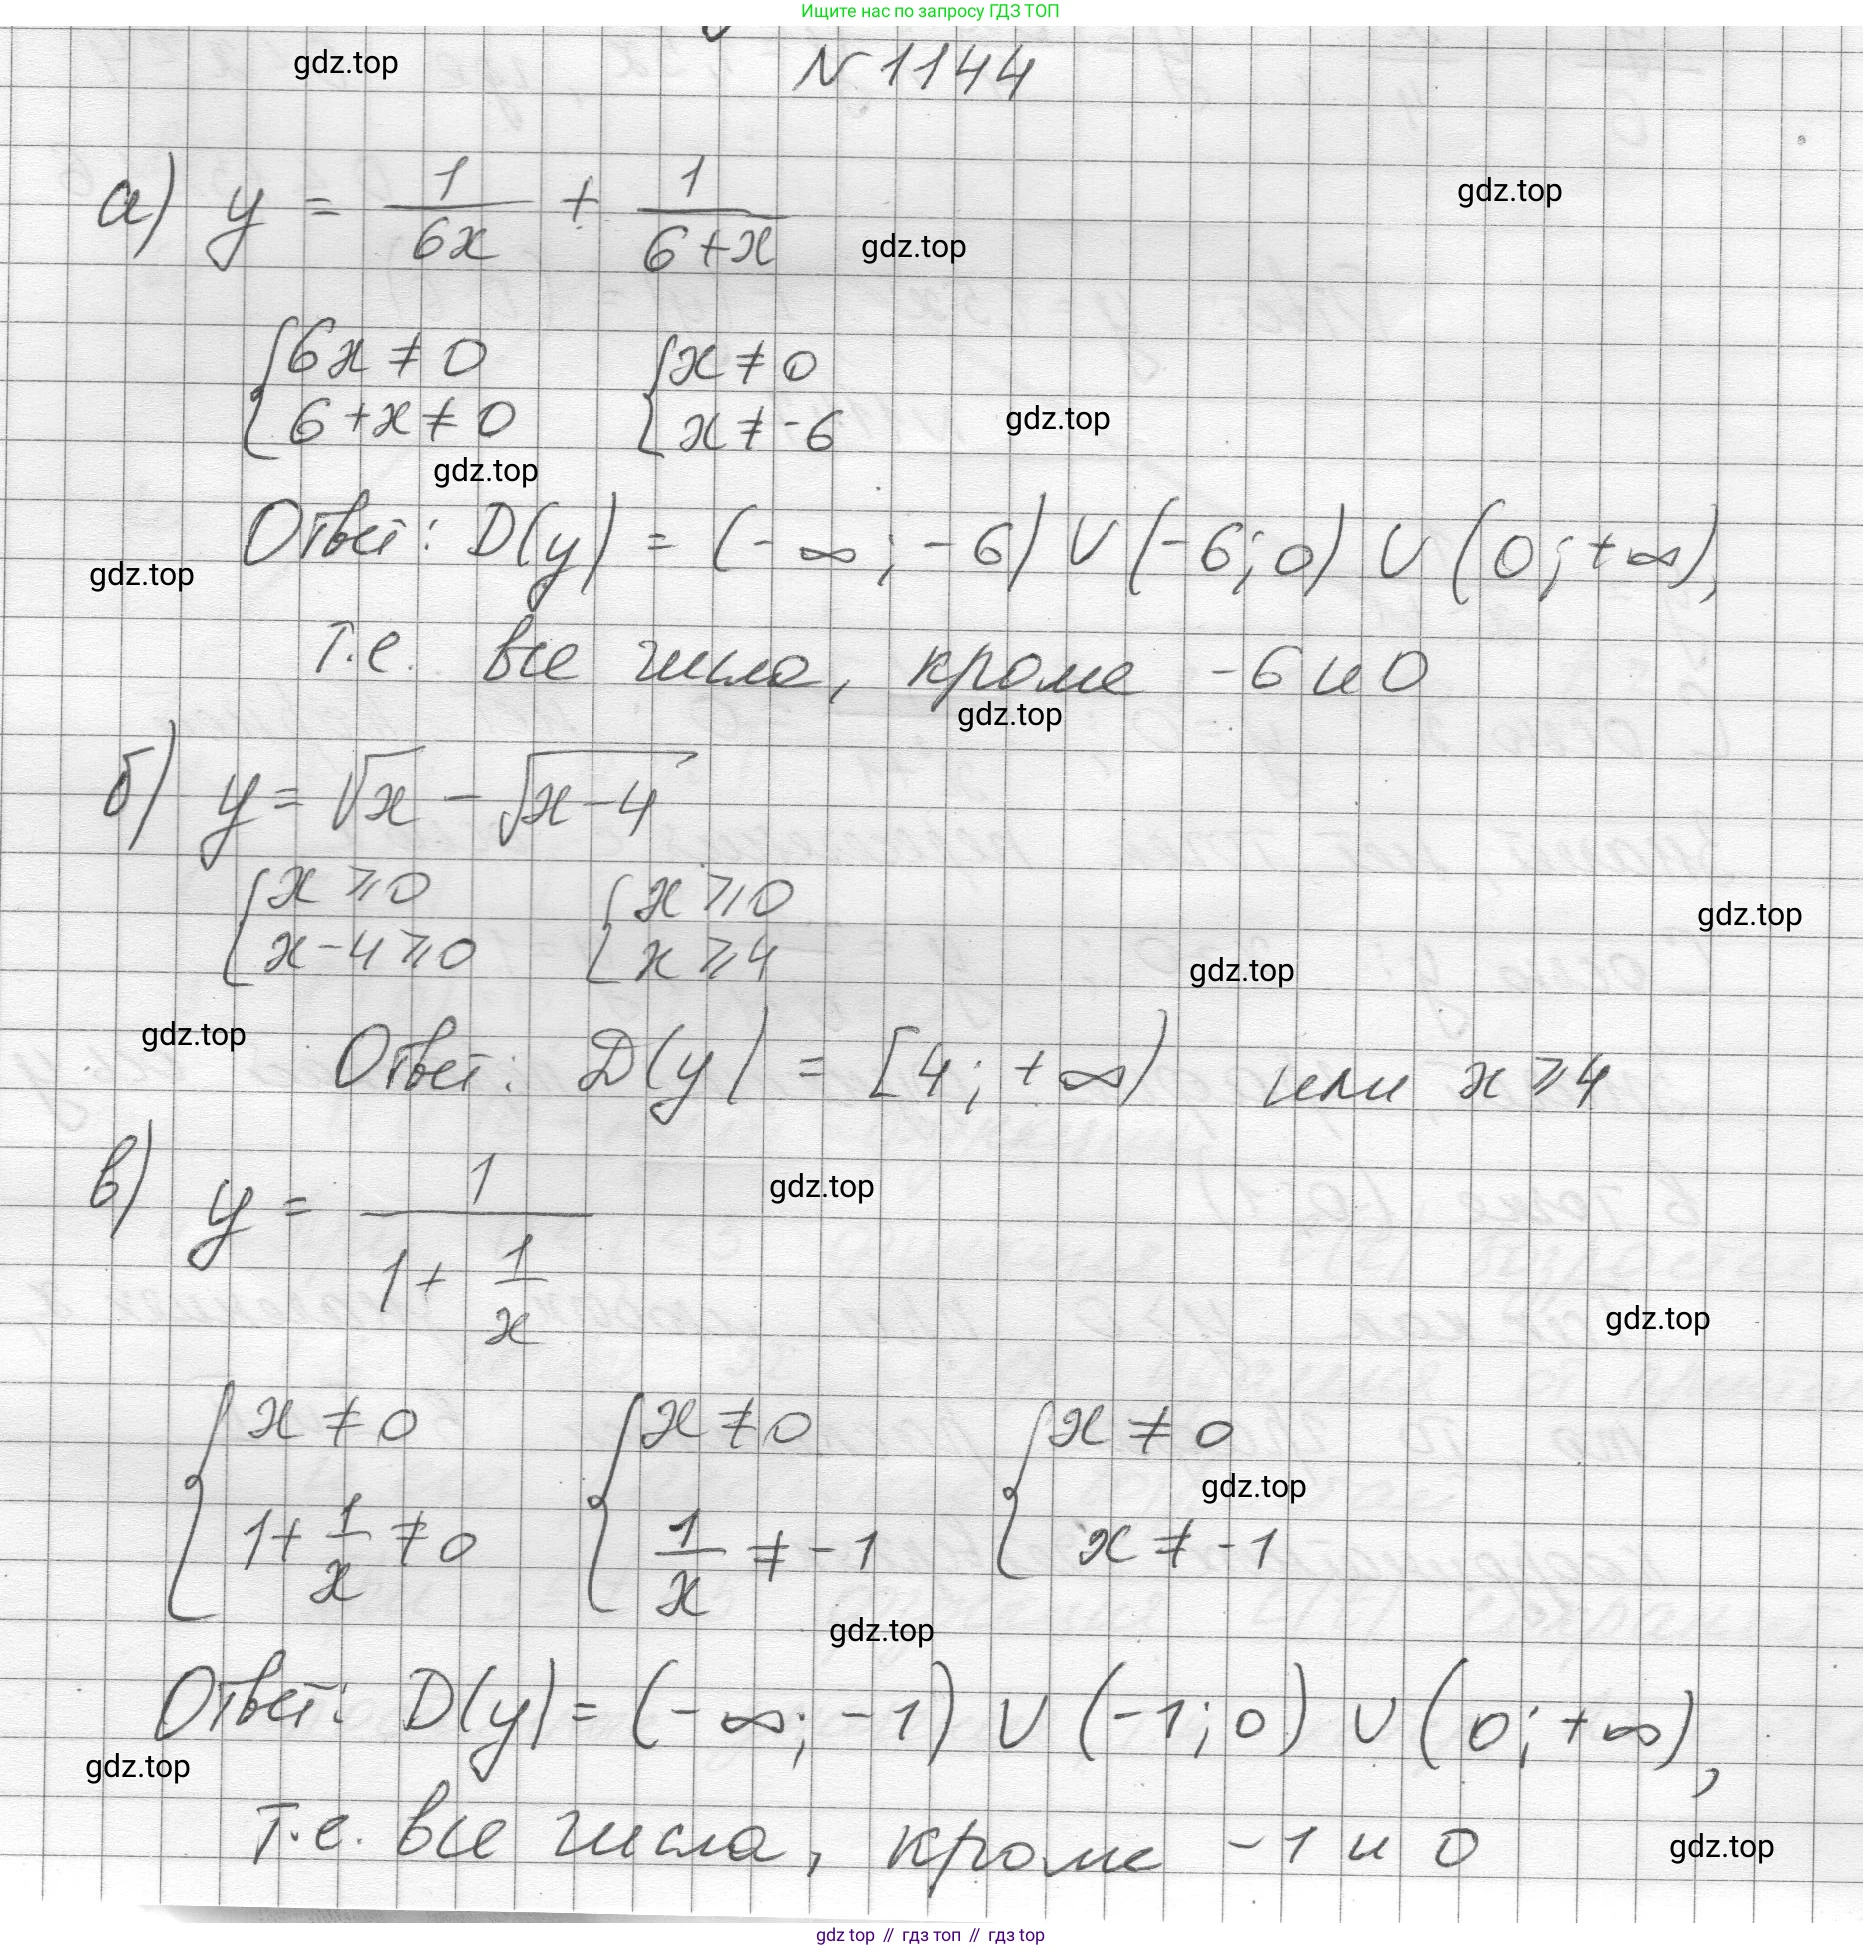 Ищите нас по запросу ГДЗ ТОП
N 1144
gdz.top
gdz.top
а) y = 1/(6x) + 1/(6+x)
gdz.top
{6x ≠ 0 {x ≠ 0
{6+x ≠ 0 {x ≠ -6
gdz.top
gdz.top
Ответ: D(y) = (-∞; -6) ∪ (-6; 0) ∪ (0; +∞),
gdz.top
т.е. все числа, кроме -6 и 0
gdz.top
б) y = √x - √(x-4)
{x ⩾ 0 {x ⩾ 0
gdz.top
{x-4 ⩾ 0 {x ⩾ 4
gdz.top
gdz.top
Ответ: D(y) = [4; +∞) или x ⩾ 4
gdz.top
в) y = 1/(1+1/x)
gdz.top
{x ≠ 0 {x ≠ 0 {x ≠ 0
gdz.top
{1+1/x ≠ 0 {1/x ≠ -1 {x ≠ -1
gdz.top
Ответ: D(y) = (-∞; -1) ∪ (-1; 0) ∪ (0; +∞),
gdz.top
т.е. все числа, кроме -1 и 0
gdz.top
gdz top // гдз топ // гдз top